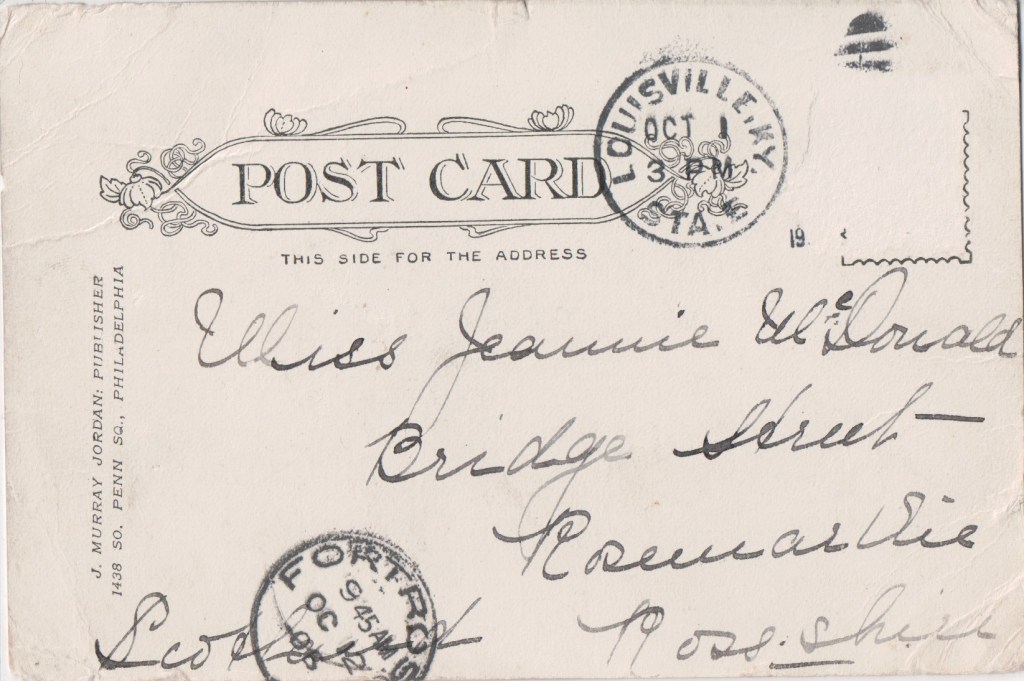 POST CARD
THIS SIDE FOR THE ADDRESS
LOUISVILLE, KY.
OCT 1
3 PM
STA. E
19
J. MURRAY JORDAN: PUBLISHER
1438 SO. PENN SQ., PHILADELPHIA
Miss Jeannie McDonald
Bridge Street
Rosemarkie
Ross-shire
Scotland
FORTROS
9 45 AM
OC 12